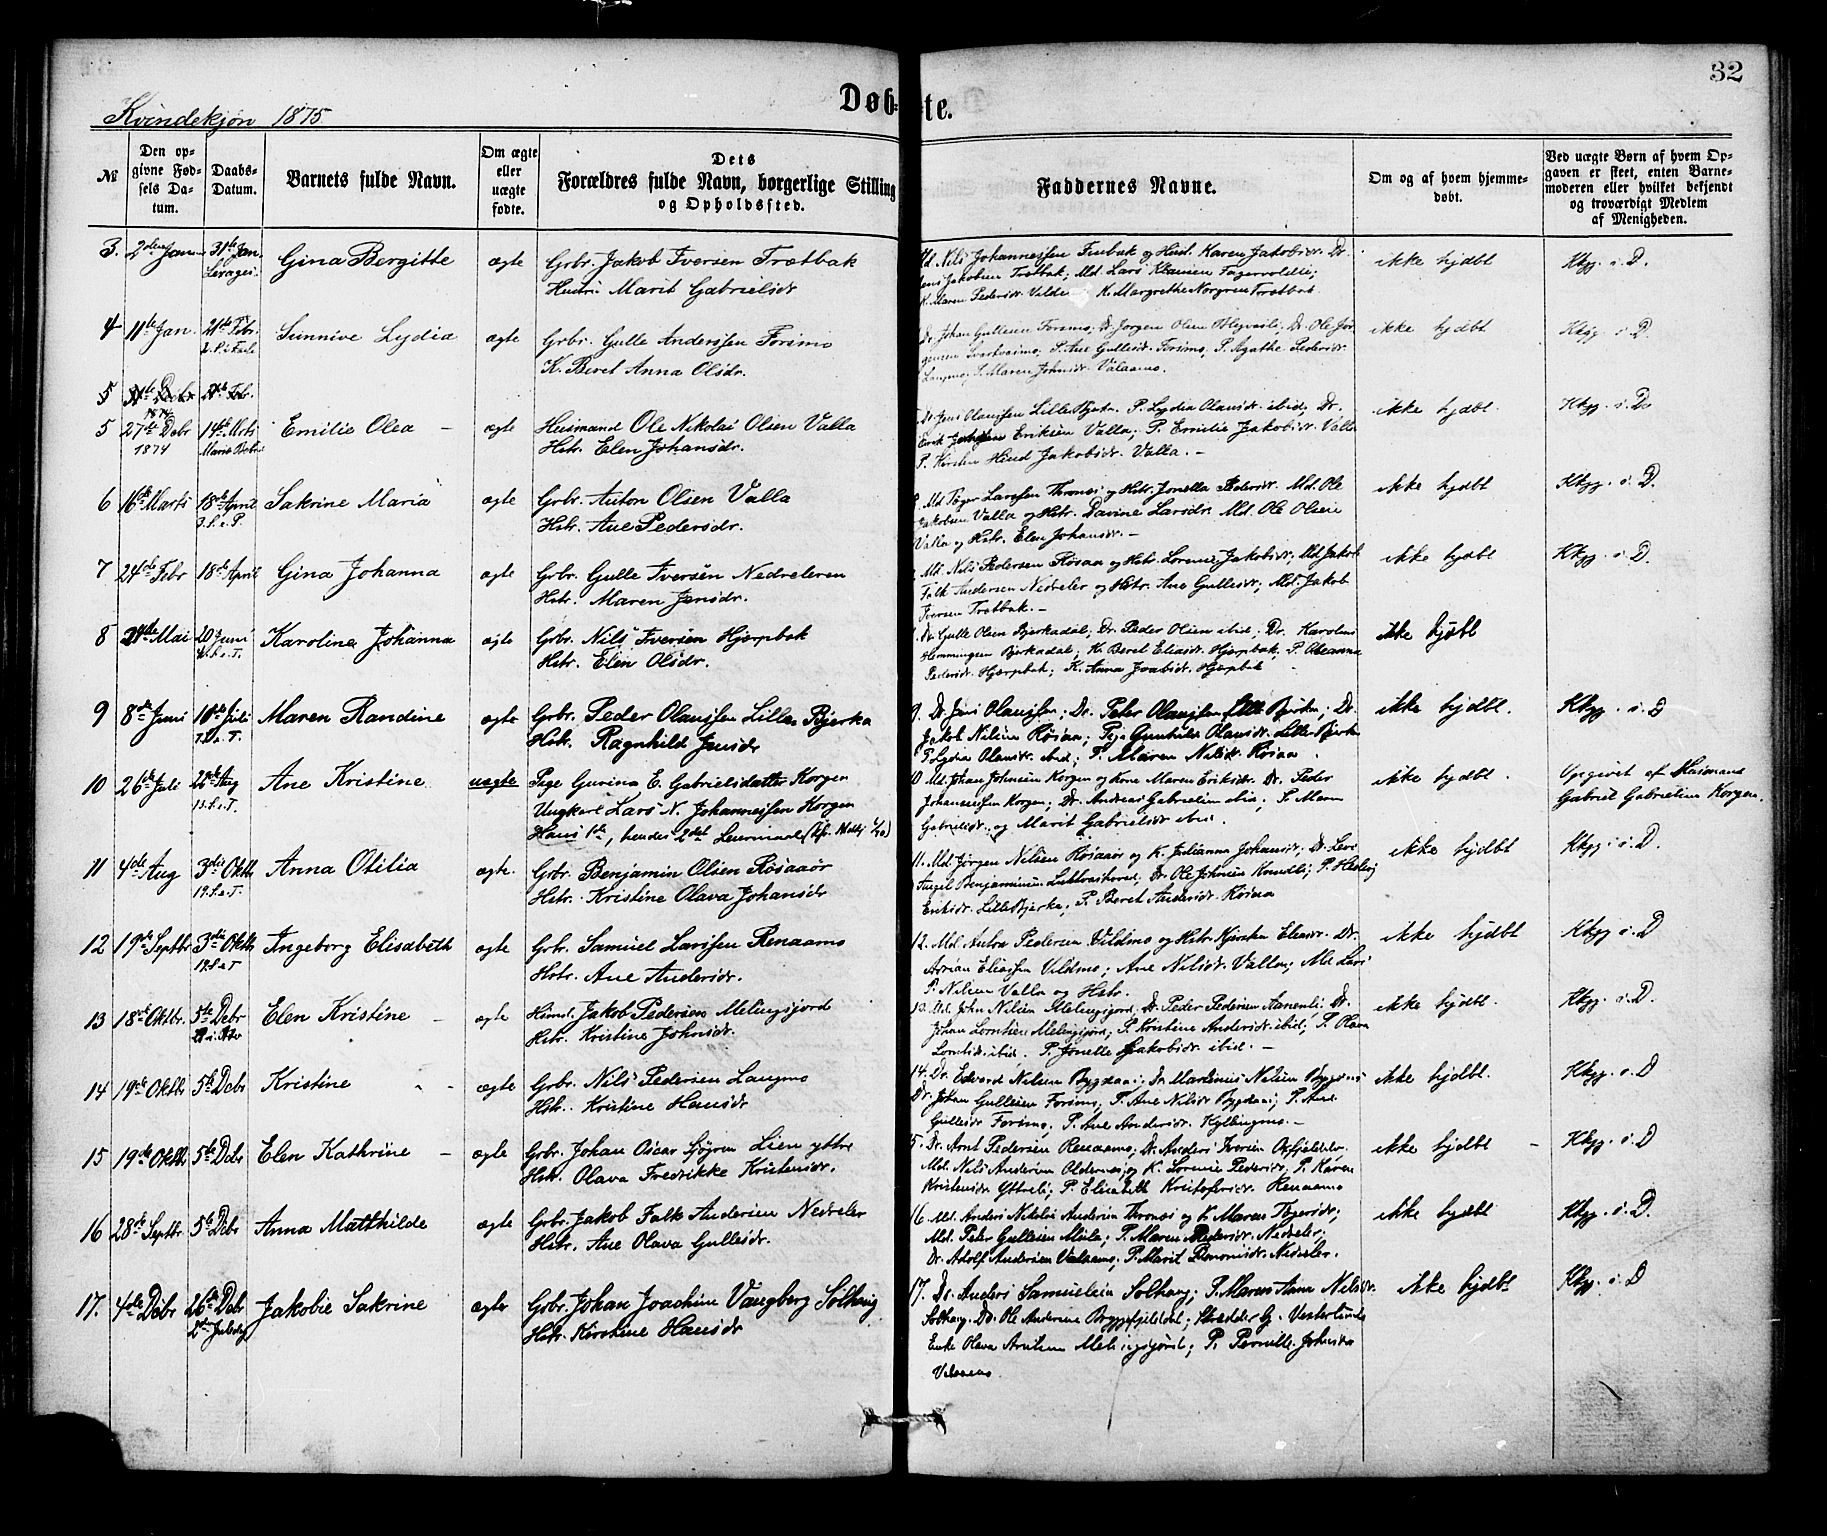 32
Døb-
te.
Kvindekjøn 1875
№
Den op-
givne Fød-
sels Da-
tum.
Daabs-
Datum.
Barnets fulde Navn.
Om ægte
eller
uægte
fødte.
Dets
Forældres fulde Navn, borgerlige Stilling
og Opholdssted.
Faddernes Navne.
Om og af hvem hjemme-
døbt.
Ved uægte Børn af hvem Op-
gaven er skeet, enten Barne-
moderen eller hvilket bekjendt
og troværdigt Medlem
af Menigheden.
3. 2den Jan 31te Jan. Gina Bergitte ægte Grbr. Jakob Iversen Trætbak
Hustru Marit Gabrielsdr
Nils Johannessen Finbak og Hust. Karen Jakobsdr. Dr.
Jens Jakobsen Trætbak; Md. Lars Klausen Fagervolli;
K. Maren Pedersdr. K. Margrethe Norgren Trætbak
ikke hjdbt Kbgj. i. D.
4 11te Jan. 21de Febr. Sunnive Lydia ægte Grbr. Gulle Anderssen Forsmo
K. Beret Anna Olsdr.
Dr. Johan Gullesen Forsmo; Dr. Jørgen Olsen; Dr. Ole Jør-
gensen Svartvasmo; P. Ane Gullesdr. Forsmo, P. Agathe Pedersdr.
Langmo; P. Maren Johnsdr. Valaamo.
ikke hjdbt Kbgj. i D.
5
5 27de Debr 1874 14de Marts Emilie Olea - ægte Husmand Ole Nikolai Olsen Valla
Maria Bebud. Hstr. Elen Johansdr.
Dr. Jens Olaussen Lille Bjerka. P. Lydia Olausdr. ibid; Dr.
Eriksen Valla; P. Emilie Jakobsdr. Valla
P. Kirsten Jakobsdr. Valla. -
ikke hjdbt. Kbgj. i. D.
6 16de Marts 18de April Sakrine Maria ægte Grbr. Anton Olsen Valla
3.S.e.P. Hstr. Ane Pedersdr.
Md. Tøger Larssen Thronæs og Hstr. Jonetta Pedersdr. Md. Ole
Jakobsen Valla og Hstr. Davine Larsdr. Md. Ole Olsen
Valla og Hstr. Elen Johansdr. -
ikke hjdbt Kbgj. i. D.
7 24de Febr 18de April Gina Johanna ægte Grbr. Gulle Iversen Nedreleren
Hstr. Maren Jensdr.
Md. Nils Pedersen Røsaa og Hstr. Lorense Jakobsdr; Md. Jakob
Falk Andersen Nedreler og Hstr. Ane Gullesdr; Md. Jakob
Iversen Trætbak. -
ikke hjdbt Kbgj. i D.
8 24de Mai 20 Juni Karoline Johanna ægte Grbr. Nils Iversen Hjerpbak
4.S.e.T. Hstr. Elen Olsdr.
Dr. Gulle Olsen Bjerkadal; Dr. Peder Olsen ibid; Dr. Karolius
Hemmingsen Bjerkadal; K. Beret Eliasdr. Hjerpbak; P. Oleanna
Pedersdr. Hjerpbak; K. Anna Joabsdr. Hjerpbak -
ikke hjdbt
9 8de Juni 10de Juli Maren Randine ægte Grbr. Peder Olaussen Lille Bjerka
7.S.e.T. Hstr. Ragnhild Jensdr
9. Dr. Jens Olaussen; Dr. Peter Olaussen Lille Bjerka; Dr.
Jakob Nilsen Røsaa; Pg. Gunhild Olausdr. Lille Bjerka
P. Lydia Olausdr. ibid; P. Maren Nilsdr. Røsaa
ikke hjdbt. Kbgj. i. D
10 26de Juli 22de Aug Ane Kristine uægte Pige Gurina E. Gabrielsdatter Korgen
13.S.e.T. Ungkarl Lars N. Johannessen Korgen
Hans 1ste, hendes 2det Leiermaal
10 Md. Johan Johnsen Korgen og Kone Maren Eriksdr. Dr. Peder
Johannessen Korgen; Dr. Andreas Gabrielsen ibid. P. Maren
Gabrielsdr. og Marit Gabrielsdr ibid.
ikke hjdbt. Opgivet af Husmand
Gabriel Gabrielsen Korgen.
11 4de Aug 3die Oktb Anna Otilia ægte. Grbr. Benjamin Olsen Røsaaør
19.S.e.T. Hstr. Kristine Olava Johansdr
11. Md. Jørgen Nilsen Røsaaør og K. Julianna Johansdr; Dr. Levi
Angel Benjaminsen; Dr. Ole Johnsen; P. Hedevig
Eriksdr. Lille Bjerka; P. Beret Andersdr. Røsaa
ikke hjdbt Kbgj. i. D.
12 19de Septbr 3die Oktb Ingeborg Elisabeth ægte Grbr. Samuel Larssen Renaamo
19.S.e.T Hstr. Ane Andersdr.
12. Md. Anton Pedersen Vildmo og Hstr. Kjersten Eliasdr. Dr.
Adrian Eliassen Vildmo; Ane Nilsdr. Valla; Md. Lars
P. Nilsen Valla og Hstr.
ikke hjdbt Kbgj i. D
13 18de Oktbr. 5te Debr Elen Kristine - ægte Husmd. Jakob Pedersen Melingsjord
Hstr. Kristine Johnsdr.
13. Md. John Nilsen Melingsjord; Dr. Peder Pedersen Aanenli; Dr.
Johan Lorntsen Melingsjord; P. Kristine Andersdr. ibid; P. Olava
Lorntsdr. ibid. P. Jonette Jakobsdr. ibid. -
ikke hjdbt. Kbgj. i. D.
14 19de Oktbr 5te Debr Kristine - ægte Grbr. Nils Pedersen Langmo
Hstr. Kristine Hansdr
14. Dr. Edvard Nilsen Bygdaas; Dr. Martinus Nilsen Bygdaas
Dr. Johan Gullesen Forsmo; P. Ane Nilsdr Bygdaas; P. Ane
Gullesdr Forsmo; P. Ane Andersdr. Kyllingmo. -
ikke hjdbt. Kbgj. i. D
15 19de Oktbr 5te Debr Elen Kathrine - ægte Grbr. Johan Oscar Sjøgren Lien yttre
Hstr. Olava Fredrikke Kristensdr.
15. Dr. Arnt Pedersen Renaamo; Dr. Anders Iversen Oxfjeldelv.
Md. Nils Andersen Oldernes og K. Lorense Pedersdr; P. Karen
Kristensdr. Ytterli; P. Elisabeth Kristofersdr. Renaamo
ikke hjdbt - Kbgj. i. D
16 28de Septbr 5te Debr Anna Matthilde ægte Grbr. Jakob Falk Andersen Nedreler
Hstr. Ane Olava Gullesdr.
16. Md. Anders Nikolai Andersen Thronæs og K. Maren Tøgersdr;
Md. Peter Gullesen Moila; P. Maren Pedersdr. Nedreler;
Dr. Adolf Andersen Valaamo; P. Marit Nedreler.
ikke hjdbt Kbgj. i. D.
17. 4de Debr 26de Debr Jakobie Sakrine ægte Grbr. Johan Joachim Vangberg Solhaug
2den Juledag Hstr. Kirstine Hansdr
17. Dr. Anders Samuelsen Solhaug; P. Maren Anna Nilsdr.
Solhaug. Dr. Ole Andersen Bryggfjeldal; Skrædder G. Vesterlund
Enke Olava Arntsen Melingsjord; P. Pernille Johnsdr
Valaamo.
ikke hjdbt Kbgj. i. D